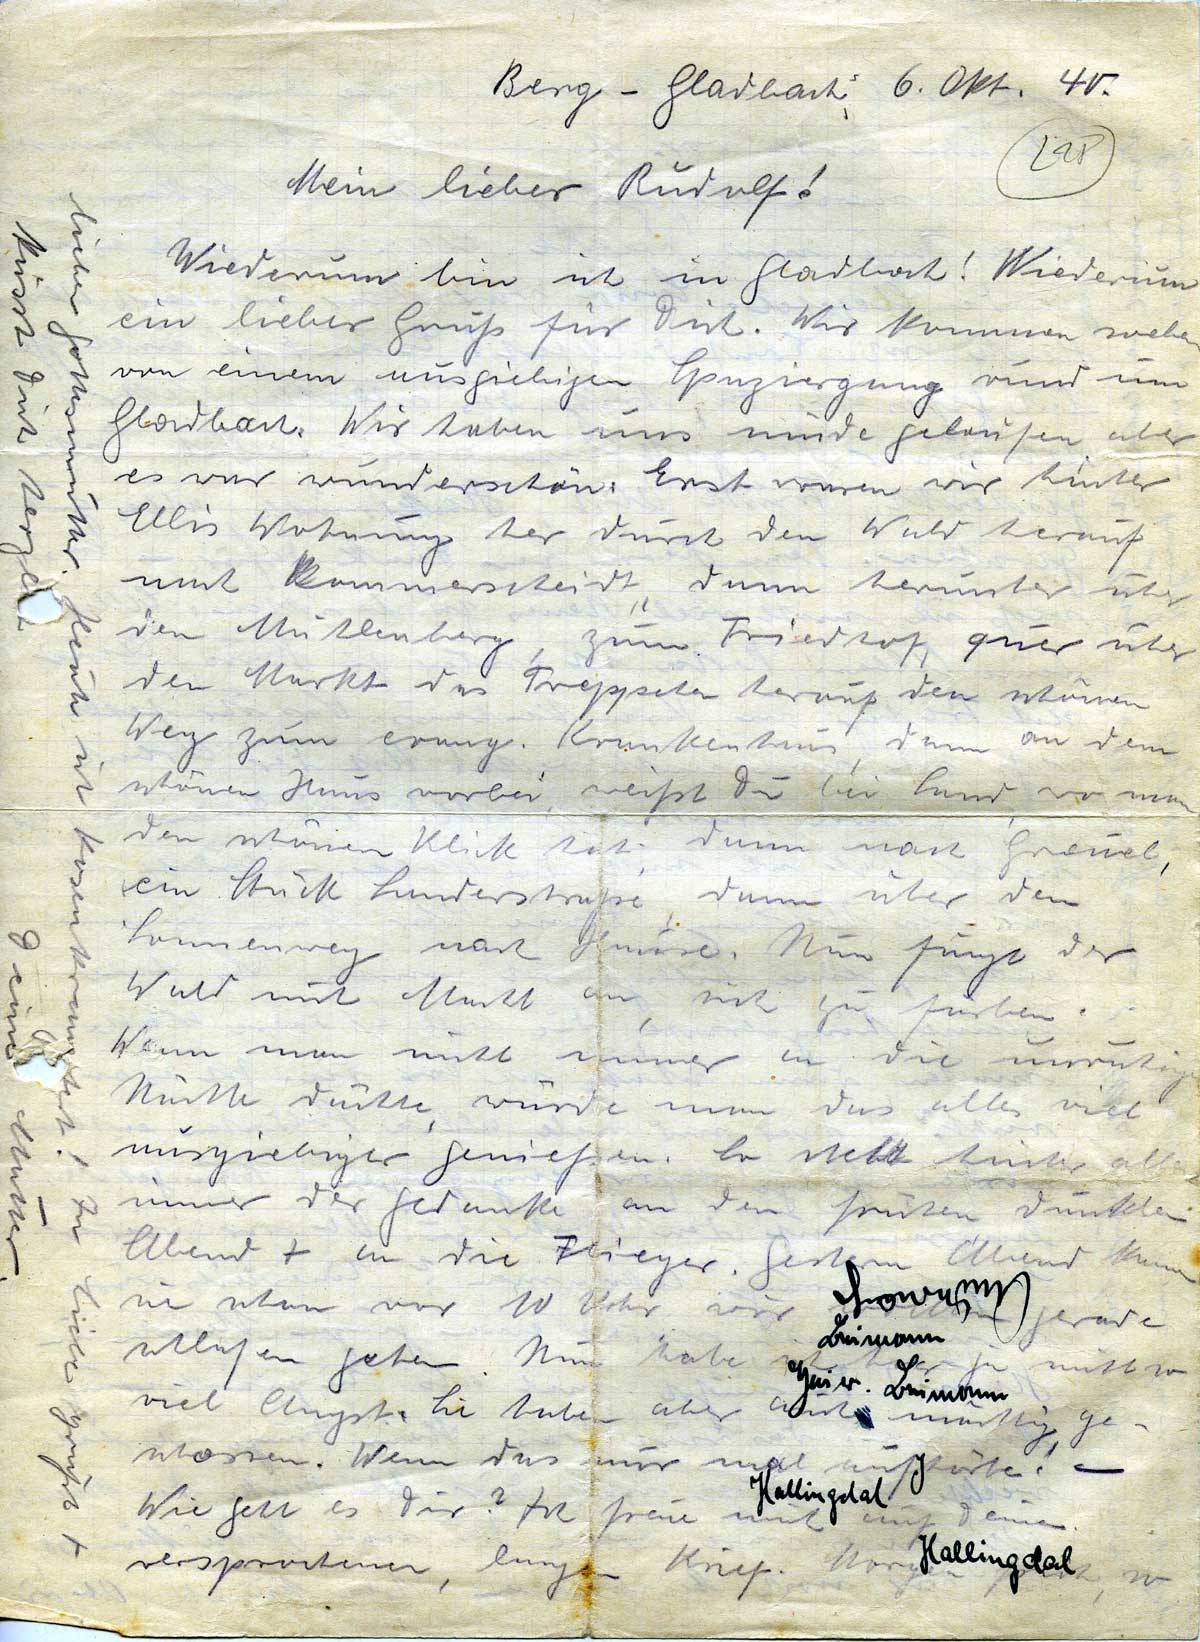 Berg-Gladbach, 6. Okt. 40.
Mein lieber Rudolf!
Wiederum bin ich in Gladbach! Wiederum
ein lieber Gruß für Dich. Wir kommen soeben
von einem ausgiebigen Spaziergang rund um
Gladbach. Wir haben uns müde gelaufen aber
es war wunderschön. Erst waren wir hinter
Ellis Wohnung her durch den Wald herauf
nach Rommerscheidt, dann herunter über
den Mühlenberg, zum Friedhof, quer über
den Markt das Treppchen herauf den schönen
Weg zum evang. Krankenhaus, dann an dem
schönen Haus vorbei, weißt Du bei Sand, wo man
den schönen Blick hat, dann nach Gräuel,
ein Stück Landerstraße, dann über den
Sonnenweg nach Hause. Nun fängt der
Wald mit Macht an, sich zu färben.
Wenn man nicht immer an die unruhigen
Nächte dächte, würde man das alles viel
ausgiebiger genießen. So steht hinter allem
immer der Gedanke an den frühen dunklen
Abend + an die Flieger. Gestern Abend kamen
sie schon vor 10 Uhr, wir gerade
schlafen gehen. Nun habe ich hier ja nicht so
viel Angst. Sie haben aber auch mächtig ge-
schossen. Wenn das nur mal aufhörte! —
Wie geht es Dir? Ich freue mich auf Deinen
versprochenen, langen Brief. so
Leimann
Leimann
Hallingdal
Hallingdal
lieber Gottesmutter. Heute ist Rosenkranzfest! In Liebe grüßt +
küsst Dich herzlich
Deine Mutter.